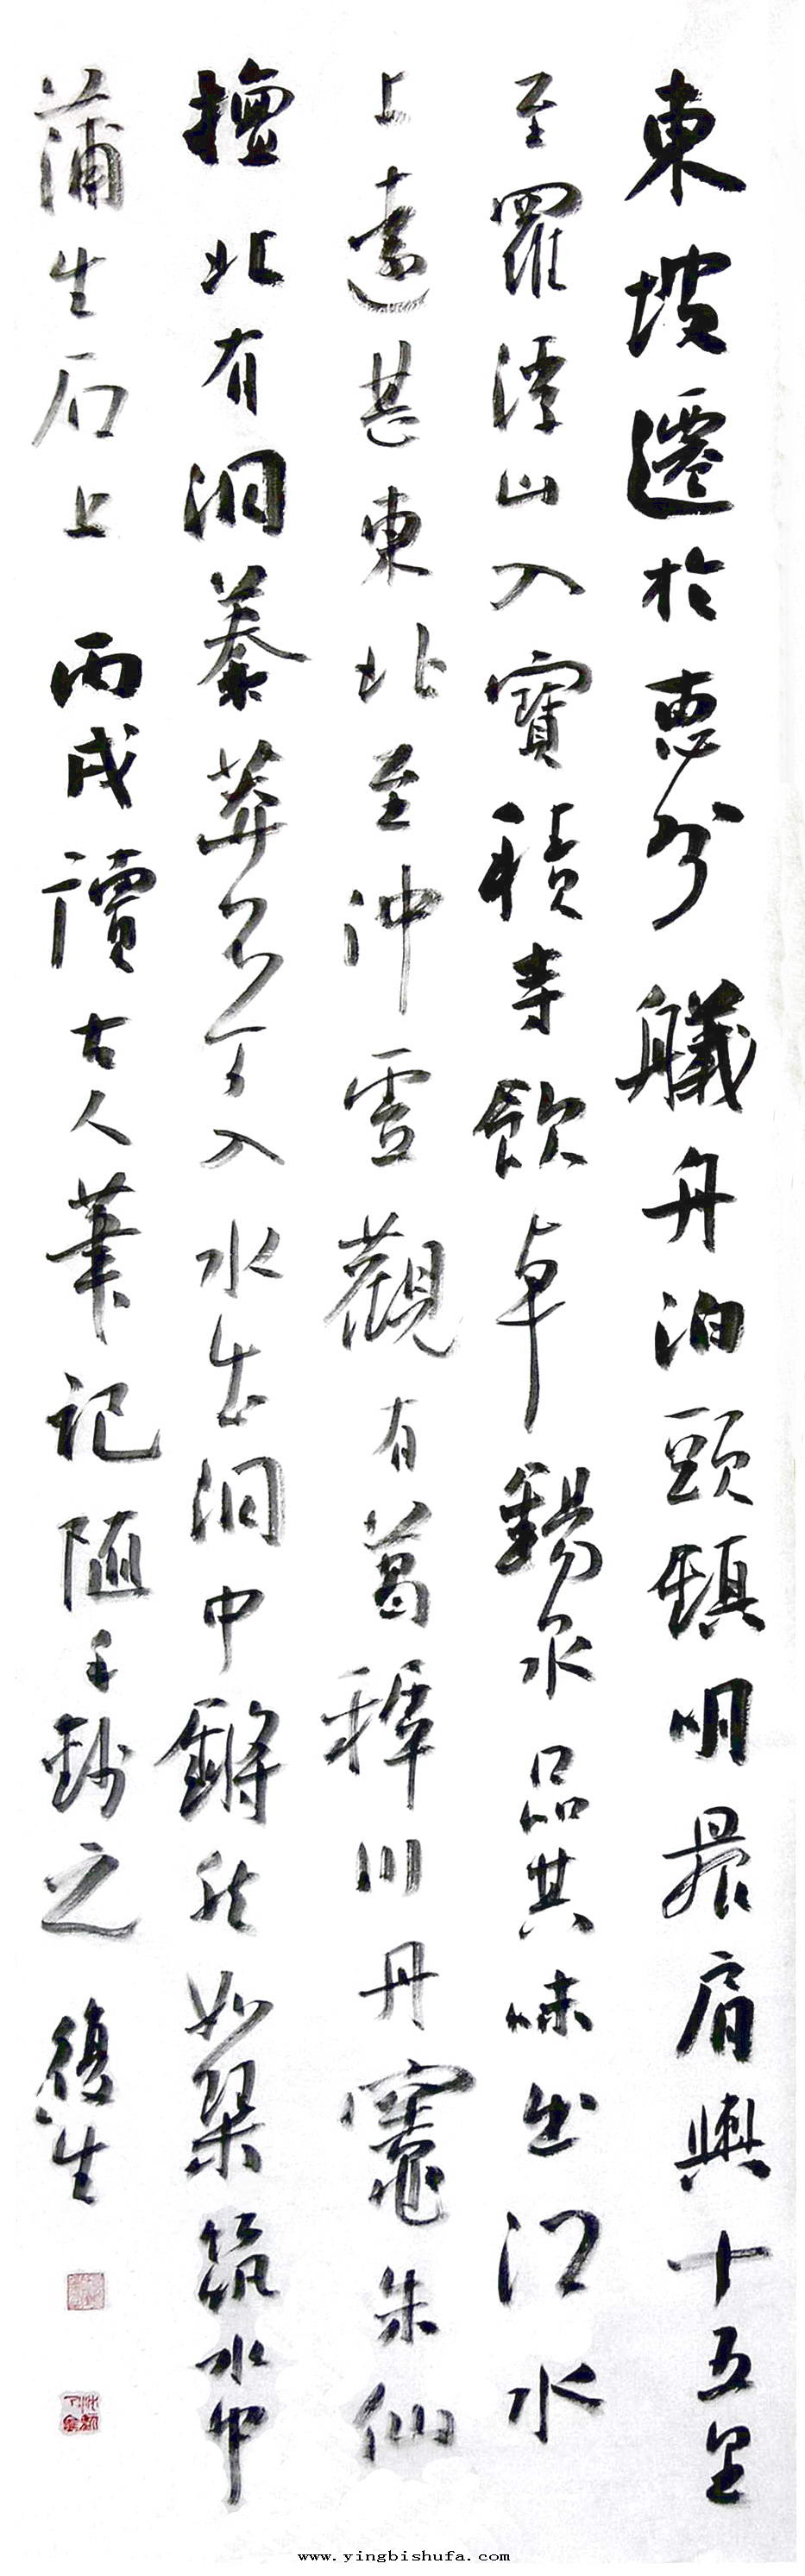 東坡遷於惠州艤舟泊頭鎮明晨肩輿十五里
至羅浮山入寶積寺飲卓錫泉品其味出江水
上遠甚東北至沖虛觀有葛稚川丹竈朱仙
壇北有洞榛莽不可入水出洞中鏘然如琴筑水中
菖蒲生石上 丙戌讀古人筆記随手鈔之 復生
www.yingbishufa.com